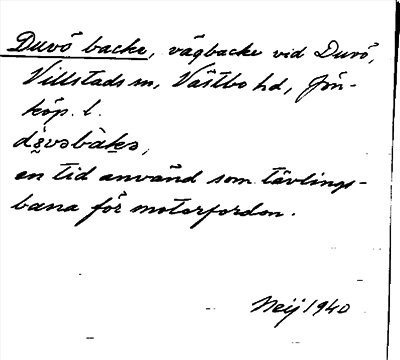 Duvö backe, vägbacke vid Duvö,
Villstads sn, Västbo hd, Jön-
köp. l.
dɛ̀vəbàkə,
en tid använd som tävlings-
bana för motorfordon.
Neij 1940